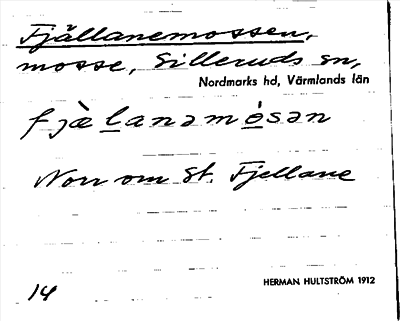 Fjällanemossen,
mosse, Silleruds sn,
Nordmarks hd, Värmlands län
fjὲḷanəmósən
Norr om St. Fjellane
14
HERMAN HULTSTRÖM 1912